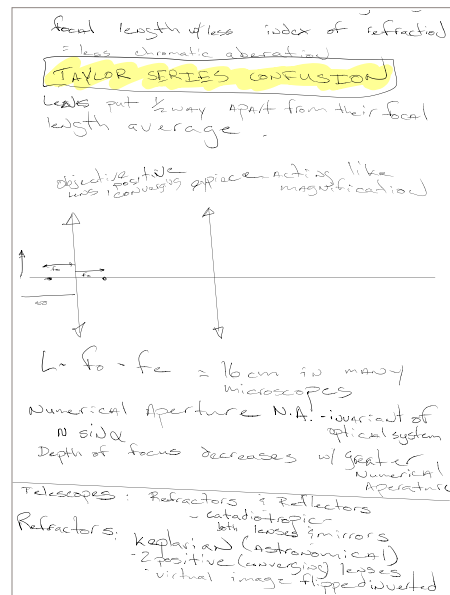 focal length w/less index of refraction
= less chromatic aberation
TAYLOR SERIES CONFUSION
Lens put 1/2 way apart from their focal
length average.
objective positive eyepiece acting like
lens, converging magnification
fo
fo
L - fo - fe = 16 cm in many
microscopes
Numerical Aperture N.A. - invariant of
n sinα optical system
Depth of focus decreases w/ greater
Numerical
Aperature
Telescopes: Refractors & Reflectors
- catadiotropic
both lenses & mirrors
Refractors: Keplarian (Astronomical)
- 2 positive (converging) lenses
- virtual image flipped inverted